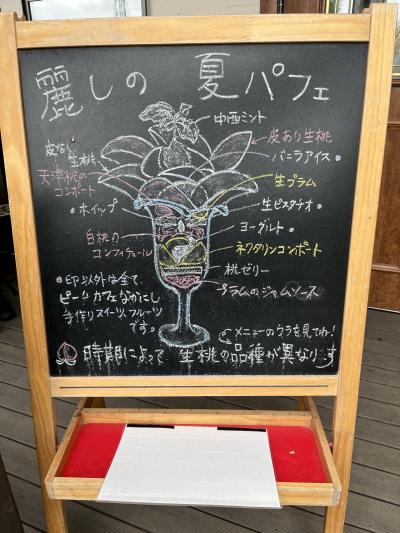 麗しの 夏パフェ
中西ミント
皮あり生桃
バニラアイス •
皮なし
生桃、
天津桃の
コンポート
生プラム
• ホイップ
生ピスタチオ •
ヨーグルト •
白桃の
コンフィチュール
ネクタリンコンポート
桃ゼリー
プラムのジャムソース
• 印以外は全て、
ピーチカフェなかにし
手作りスイーツ、フルーツ
です。
メニューのウラを見てね!
時期によって 生桃の品種が異なります